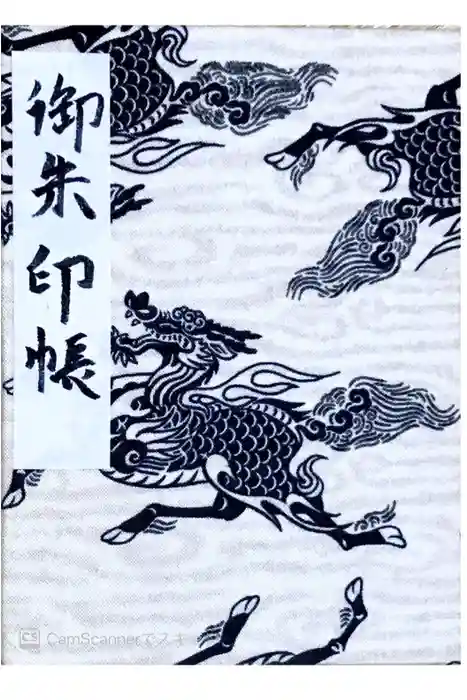 御朱印帳
CS CamScannerでスキ